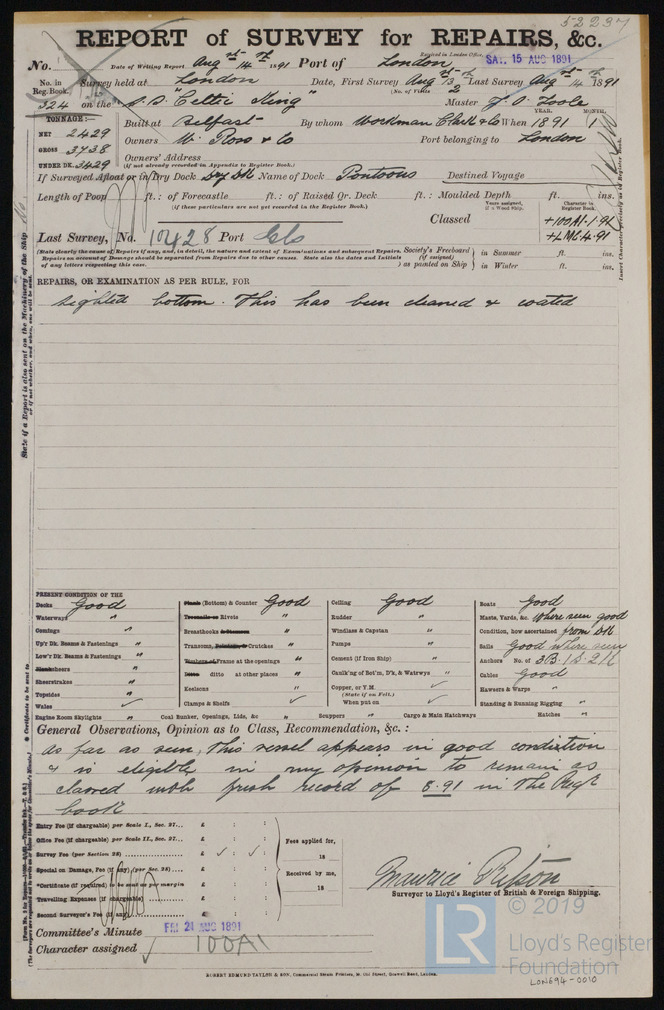 52237
REPORT of SURVEY for REPAIRS, &c.
Received in London Office SAT. 15 AUG 1891
No. Date of Writing Report Aug st 14 th 1891 Port of London
No. in Reg. Book. Survey held at London Date, First Survey Aug st 13 th Last Survey Aug st 14 th 1891
(No. of Visits 2
324 on the S.S. "Celtic King" Master J. O. Toole
TONNAGE:— Built at Belfast By whom Workman Clark & Co When 1891 YEAR. MONTH. 1
NET 2429
GROSS 3738
UNDER DK. 3429
Owners W. Ross & Co Port belonging to London
Owners' Address
(if not already recorded in Appendix to Register Book.)
If Surveyed Afloat or in Dry Dock Dry Dk Name of Dock Pontoons Destined Voyage
Length of Poop ft. : of Forecastle ft.: of Raised Qr. Deck ft. : Moulded Depth ft. ins.
(if these particulars are not yet recorded in the Register Book.)
Years assigned, if a Wood Ship. Character in Register Book.
Classed +100A1-1.91
+LMC4.91
Last Survey, No. 10428 Port Gls
(State clearly the cause of Repairs if any, and, in detail, the nature and extent of Examinations and subsequent Repairs.
Repairs on account of Damage should be separated from Repairs due to other causes. State also the dates and Initials
of any letters respecting this case.
Society's Freeboard (if assigned) as painted on Ship } in Summer ft. ins.
in Winter ft. ins.
REPAIRS, OR EXAMINATION AS PER RULE, FOR
Sighted bottom. This has been cleaned & coated
PRESENT CONDITION OF THE
Decks Good
Waterways "
Comings "
Up'r Dk. Beams & Fastenings "
Low'r Dk. Beams & Fastenings "
Planksheers "
Sheerstrakes "
Topsides "
Wales ✓
Engine Room Skylights "
Plank (Bottom) & Counter Good
Treenails or Rivets "
Breasthooks & Stemson "
Transoms, Pointers, & Crutches "
Timbers of Frame at the openings "
Ditto ditto at other places "
Keelsons "
Clamps & Shelfs ✓
Coal Bunker, Openings, Lids, &c "
Ceiling Good
Rudder "
Windlass & Capstan "
Pumps "
Cement (if Iron Ship) "
Caulk'ng of Bot'm, D'k, & Watrwys "
Copper, or Y.M. (State if on Felt.) ✓
When put on ✓
Scuppers "
Cargo & Main Hatchways "
Boats Good
Masts, Yards, &c. Where seen good
Condition, how ascertained from Dk
Sails Good where seen
Anchors No. of 3B. 1S. 2K
Cables Good
Hawsers & Warps "
Standing & Running Rigging "
Hatches "
General Observations, Opinion as to Class, Recommendation, &c. :
As far as seen, This vessel appears in good condition
& is eligible in my opinion to remain as
classed with fresh record of 8.91 in The Regr
book
Entry Fee (if chargeable) per Scale I., Sec. 27... £ : :
Office Fee (if chargeable) per Scale II., Sec. 27... £ : :
Survey Fee (per Section 28) £ ✓ : ✓ :
Special on Damage, Fee (if any) (per Sec. 28) £ : :
*Certificate (if required) to be sent as per margin £ : :
Travelling Expenses (if chargeable) £ : :
Second Surveyor's Fee (if any) £ : :
Fees applied for,
18
Received by me,
18
Surveyor to Lloyd's Register of British & Foreign Shipping.
Committee's Minute FRI 21 AUG 1891
Character assigned 100A1
ROBERT EDMUND TAYLOR & SON,
LR
© 2019
Lloyd's Register
Foundation
LON694-0010